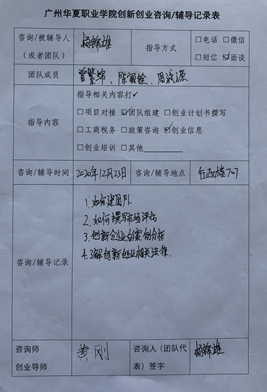 广州华夏职业学院创新创业咨询/辅导记录表
咨询/被辅导人
（或者团队）
指导方式
□电话 □微信
□短信 ☑面谈
团队成员
指导内容
指导相关内容打✓
□项目对接 ☑团队组建 □创业计划书撰写
□工商税务 □政策咨询 ☑创业信息
□创业培训 □其他
咨询/辅导时间 2020年12月23日 咨询/辅导地点 行政楼707
咨询/辅导记录
1.如何建团队
2.如何撰写市场评估
3.创新创业的案例分析
4.了解创新创业相关法律.
咨询师
创业导师
黄刚
咨询人（团队代
表）签字